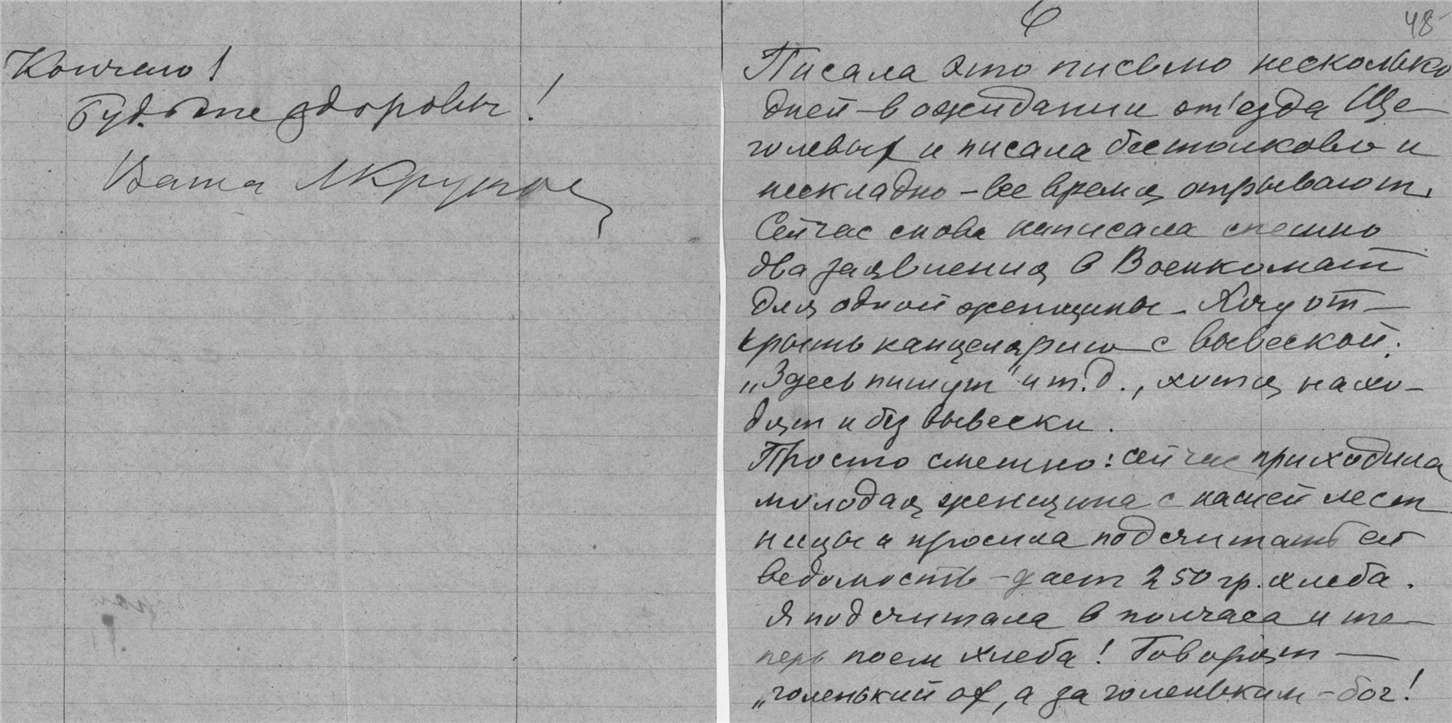 Кончаю!
Будьте здоровы!
Ваша Л Круц
6
48
Писала это письмо несколько
дней – в ожидании от'езда Ще-
голевых и писала бестолково и
нескладно – все время отрывают.
Сейчас снова написала спешно
два заявления в Военкомат
для одной женщины. Хочу от-
крыть канцелярию с вывеской:
„Здесь пишут" и т.д., хотя нахо-
дят и без вывески.
Просто смешно: сейчас приходила
молодая женщина с нашей лест
ницы и просила подсчитать ей
ведомость – дает 250 гр. хлеба.
Я подсчитала в полчаса и те-
перь поем хлеба! Говорят —
„голенький ох, а за голеньким – бог!